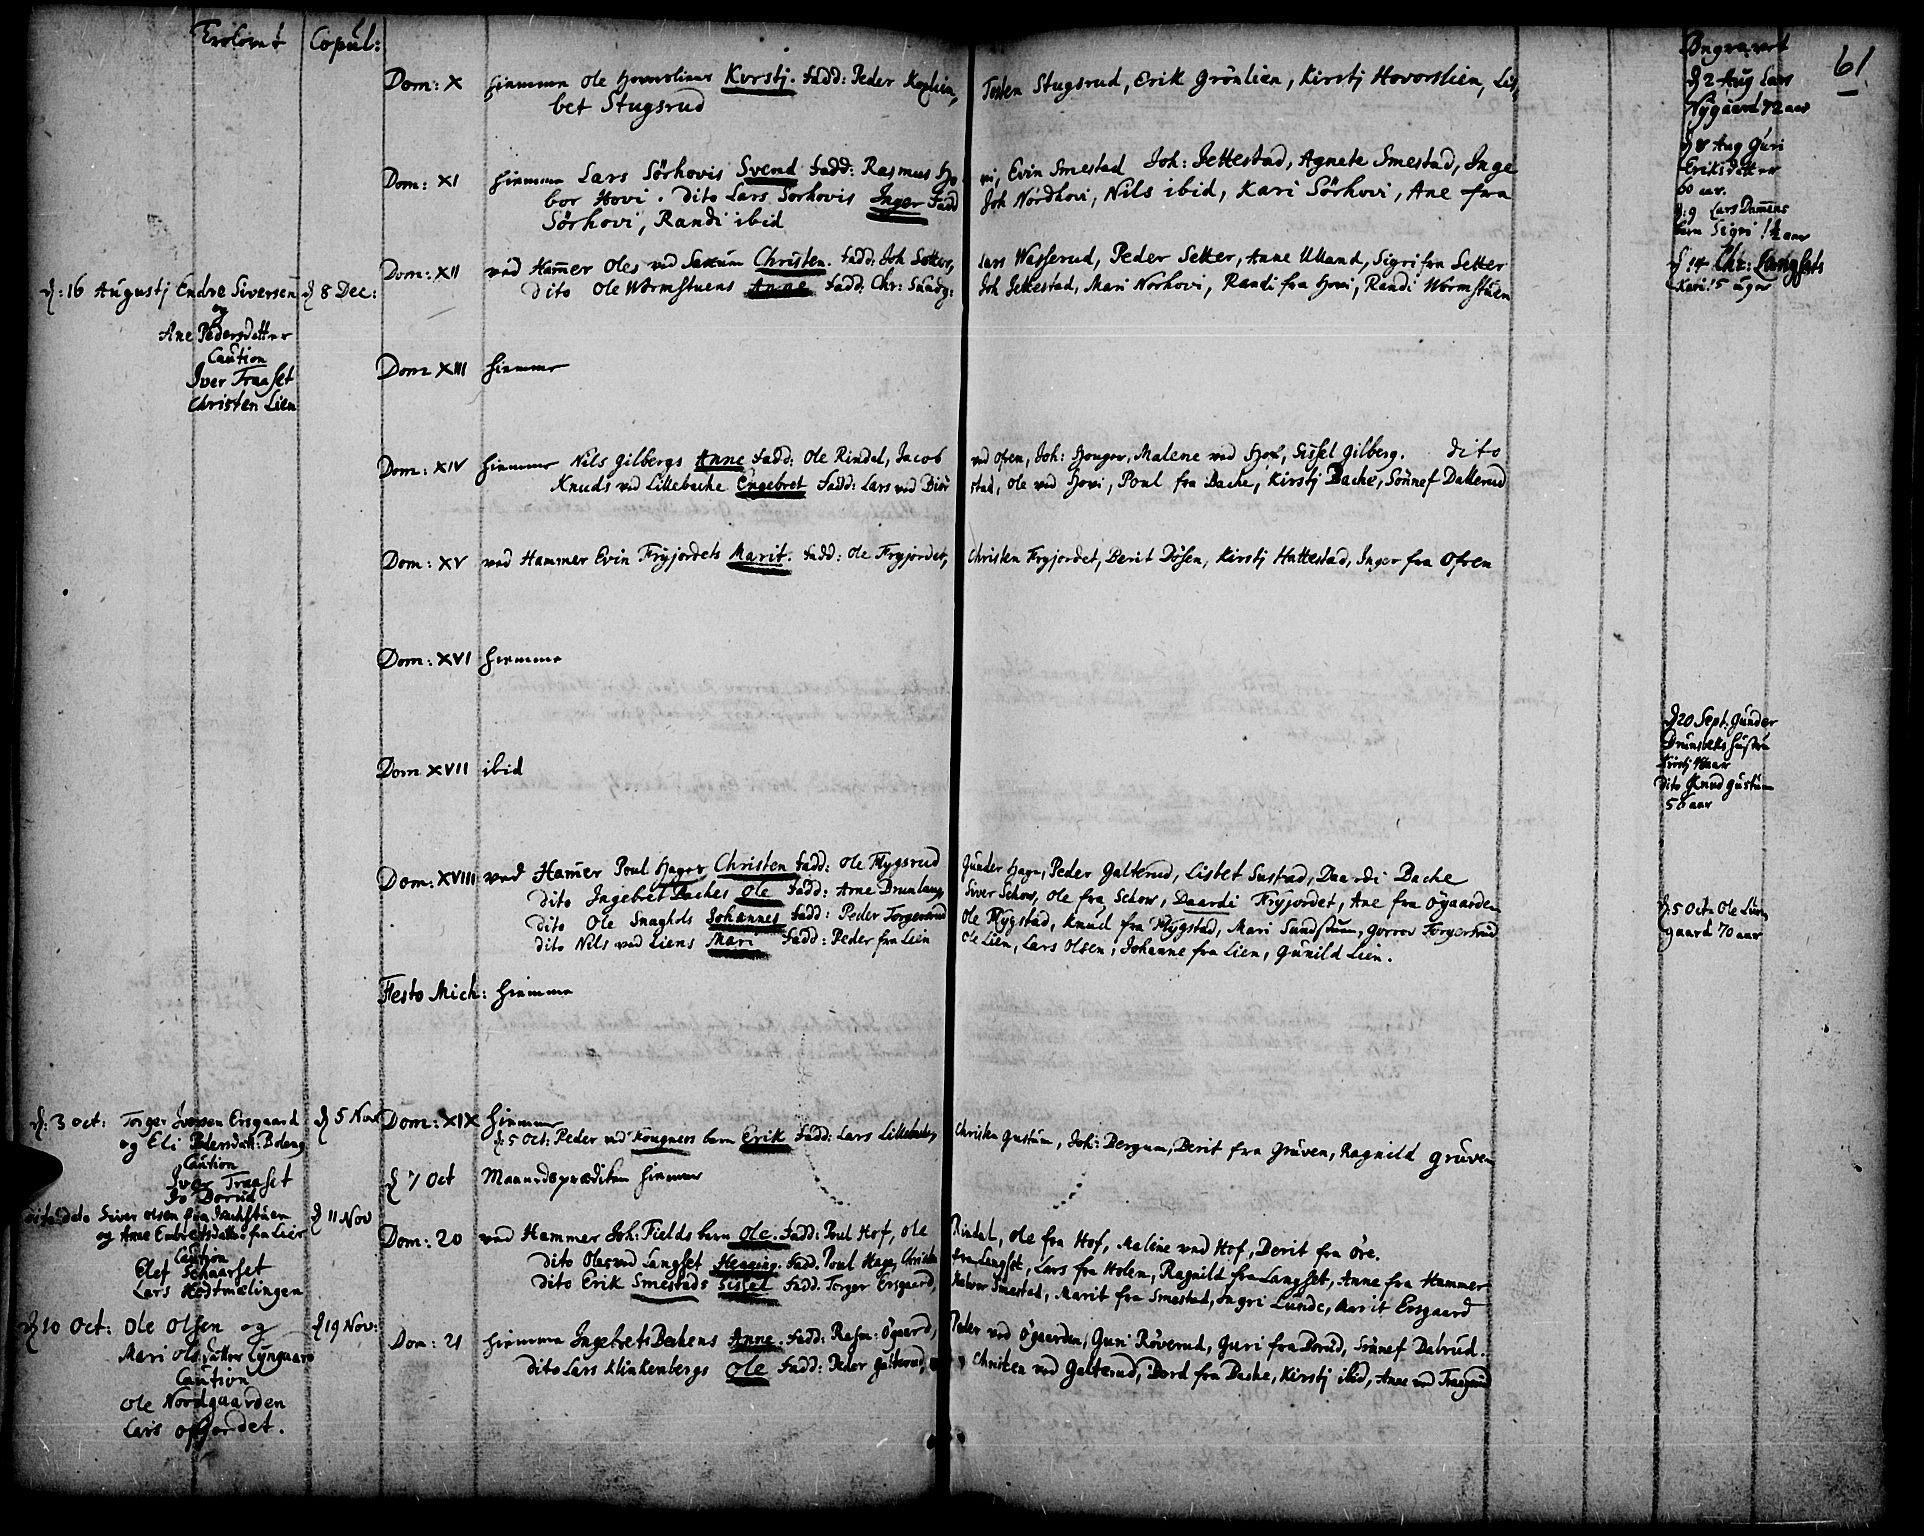 Trolovet Copul:
61
Dom: X hiemme Ole Hovorsliens Kirstj. Fadd: Peder Koglien, Tosten Stugsrud, Erik Grönlien, Kirstj Hovorslien, Lis-
bet Stugsrud
Dom: XI hiemme Lars Sörhovis Svend Fadd: Rasmus Ho vi, Evin Smestad Joh: Jettestad, Agnete Smestad, Inge
bor Hovi. dito Lars Sörhovis Inger Fadd Joh Nordhovi, Nils ibid, Kari Sörhovi, Ane fra
Sörhovi, Randi ibid
Dom: XII ved Hamer Oles ved Saxum Christen. Fadd: Joh Setter, Lars Wasserud, Peder Setter, Anne Ulland, Sigri fra Setter
dito Ole Wormstuens Anne Fadd: Chr: Joh Jettestad, Mari Norhovi, Randi fra Hovi, Randi Wormstuen
Dom XIII hiemme
Dom: XIV hiemme Nils Gilbergs Anne Fadd: Ole Rindal, Jacob ved Ofren, Joh: Honger, Malene ved Hof, Sissel Gilberg. dito
Knuds ved Lillebache Engebret Fadd: Lars ved Biör stad, Ole ved Hovi, Poul fra Bache, Kirstj Bache, Sönnef Dallerud
Dom: XV ved Hammer Evin Fryjordets Marit. Fadd: Ole Fryjordet, Christen Fryjordet, Berit Dösen, Kirstj Hattestad, Inger fra Ofren
Dom: XVI hiemme
Dom XVII ibid
Dom: XVIII ved Hamer Poul Hages Christen Fadd: Ole Flygsrud Gunder Hage, Peder Galterud, Lisbet Sustad, Daardi Bache
dito Ingebret Baches Ole Fadd: Arne Brunlaug, Siver Schow, Ole fra Schow, Daardi Fryjordet, Ane fra Ögaarden
dito Ole Snaghols Johannes Fadd: Peder Torgersrud Ole Flygstad, Knud fra Flygstad, Mari Sundstuen, Gorroe Torgersrud
dito Nils ved Liens Mari Fadd: Peder fra Lien Ole Lien, Lars Olsen, Johanne fra Lien, Gunild Lien.
Festo Mich: hiemme
Dom: XIX hiemme
d: 5 Oct: Peder ved Kougners barn Erik Fadd: Lars Lillebache, Christen Gustum, Joh: Bergum, Berit fra Gruven, Ragnild Gruven
d 7 Oct Maanedsprædiken hiemme
Dom: 20 ved Hammer Joh: Fields barn Ole. Fadd: Poul Hof, Ole Rindal, Ole fra Hof, Malene ved Hof, Berit fra Öre.
dito Oles ved Langset Henning. Fadd. Poul Hage, Christen fra Langset, Lars fra Holen, Ragnild fra Langset, Anne fra Hammer
dito Erik Smestads Sissel Fadd. Torger Ersgaard, Halvor Smestad, Marit fra Smestad, Ingri Lunde, Marit Ersgaard
Dom: 21 hiemme Ingebret Bechens Anne. Fadd: Rasm: Ögaard, Peder ved Ögaarden, Guri Röverud, Guri fra Borud, Sönnef Dalrud.
dito Lars Klinkenbergs Ole Fadd: Peder Galterud, Christen ved Galterud, Bord fra Bache, Kirstj ibid, Anne ved
d: 16 Augustj Endre Siversen d 8 Dec:
og
Ane Pedersdatter
Caution
Iver Traaset
Christen Lien
d: 3 Oct: Torger Iversen Ersgaard d 5 Nov
og Eli Pedersdatt:
Caution
Iver Traaset
Jo Borud
dito dato Siver Olsen fra d 11 Nov
og Anne Embretsdatter fra Lier
Caution
Olef Schaarset
Lars
d 10 Oct: Ole Olsen og d 19 Nov:
Mari Olsdatter Lyngaars
Caution
Ole Nordgaarden
Lars
Begravet
d 2 Aug Lars
Nygaard 72 aar
d 8 Aug Guri
Eriksdatter
60 aar.
d: 9 Lars
barn Sigri 1½ aar
d 14 Chr: Langsets
Kari 15 uger
d 20 Sept: Gunder
hustru
Kirstj 48 aar
dito Knud Gustum
56 aar
d: 5 Oct: Ole Lun
gaard 70 aar